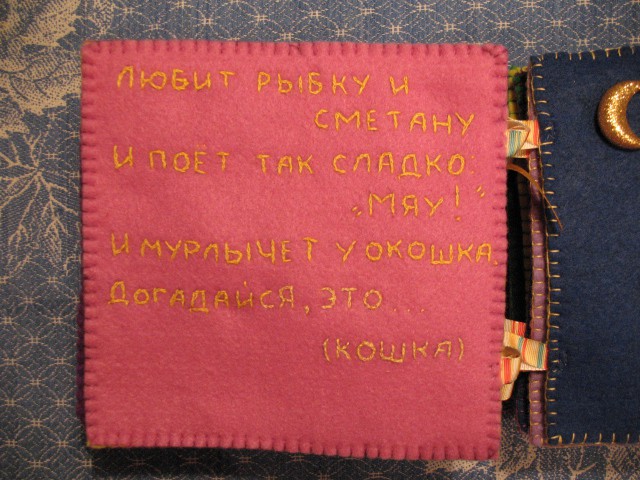 ЛЮБИТ РЫБКУ И
СМЕТАНУ
И ПОЁТ ТАК СЛАДКО:
„МЯУ!"
И МУРЛЫЧЕТ У ОКОШКА.
ДОГАДАЙСЯ, ЭТО...
(КОШКА)